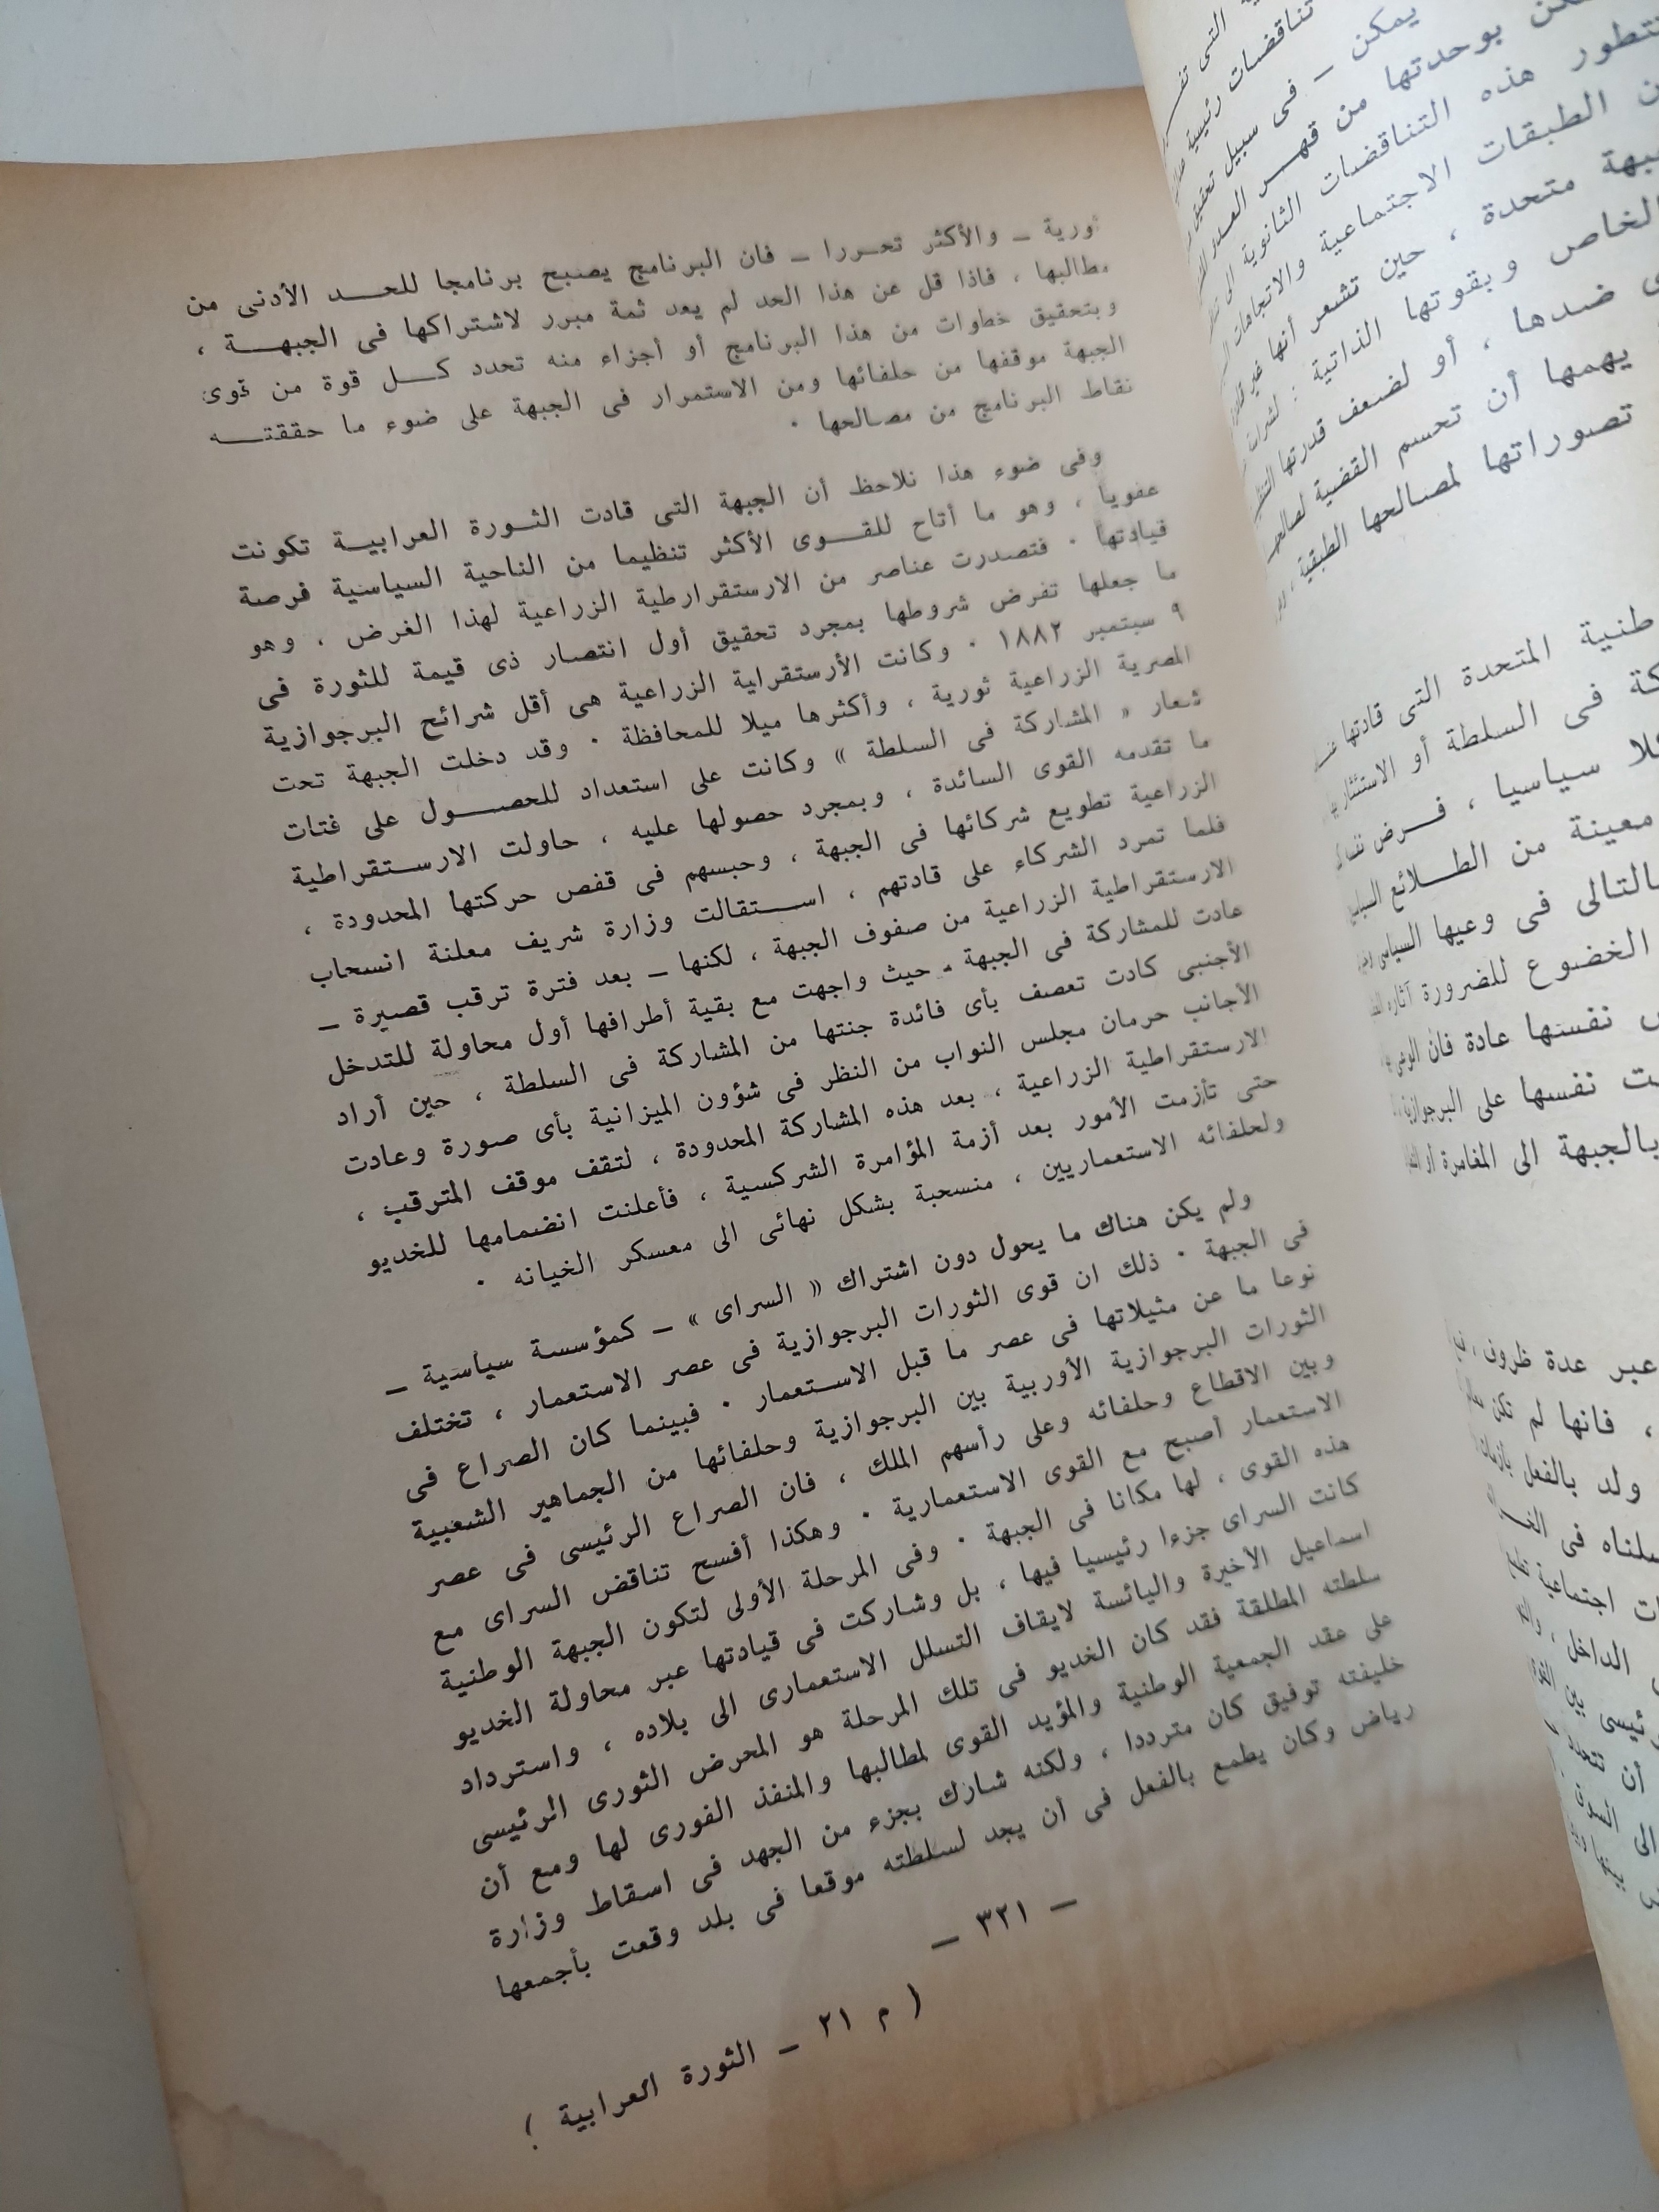 ثورية ــ والأكثر تحــررا ــ فان البرنامج يصبح برنامجا للحــد الأدنى من
مطالبها ، فاذا قل عن هذا الحد لم يعد ثمة مبرر لاشتراكها فى الجبهــة ،
وبتحقيق خطوات من هذا البرنامج أو أجزاء منه تحدد كــل قوة من قوى
الجبهة موقفها من حلفائها ومن الاستمرار فى الجبهة على ضوء ما حققتــه
نقاط البرنامج من مصالحها ·
وفى ضوء هذا نلاحظ أن الجبهة التى قادت الثــورة العرابيــة تكونت
عفويا ، وهو ما أتاح للقــوى الأكثر تنظيما من الناحية السياسية فرصة
قيادتها · فتصدرت عناصر من الارستقرارطية الزراعية لهذا الغرض ، وهو
ما جعلها تفرض شروطها بمجرد تحقيق أول انتصار ذى قيمة للثورة فى
٩ سبتمبر ١٨٨٢ · وكانت الأرستقراية الزراعية هى أقل شرائح البرجوازية
المصرية الزراعية ثورية ، وأكثرها ميلا للمحافظة · وقد دخلت الجبهة تحت
شعار « المشاركة فى السلطة » وكانت على استعداد للحصــول على فتات
ما تقدمه القوى السائدة ، وبمجرد حصولها عليه ، حاولت الارستقراطية
الزراعية تطويع شركائها فى الجبهة ، وحبسهم فى قفص حركتها المحدودة ،
فلما تمرد الشركاء على قادتهم ، استقالت وزارة شريف معلنة انسحاب
الارستقراطية الزراعية من صفوف الجبهة ، لكنها ــ بعد فترة ترقب قصيرة ــ
عادت للمشاركة فى الجبهة ـ حيث واجهت مع بقية أطرافها أول محاولة للتدخل
الأجنبى كادت تعصف بأى فائدة جنتها من المشاركة فى السلطة ، حين أراد
الأجانب حرمان مجلس النواب من النظر فى شؤون الميزانية بأى صورة وعادت
الارستقراطية الزراعية ، بعد هذه المشاركة المحدودة ، لتقف موقف المترقب ،
حتى تأزمت الأمور بعد أزمة المؤامرة الشركسية ، فأعلنت انضمامها للخديو
ولحلفائه الاستعماريين ، منسحبة بشكل نهائى الى معسكر الخيانه ·
ولم يكن هناك ما يحول دون اشتراك « السراى » ــ كمؤسسة سياسية ــ
فى الجبهة · ذلك ان قوى الثورات البرجوازية فى عصر الاستعمار ، تختلف
نوعا ما عن مثيلاتها فى عصر ما قبل الاستعمار · فبينما كان الصراع فى
الثورات البرجوازية الأوربية بين البرجوازية وحلفائها من الجماهير الشعبية
وبين الاقطاع وحلفائه وعلى رأسهم الملك ، فان الصراع الرئيسى فى عصر
الاستعمار أصبح مع القوى الاستعمارية · وهكذا أفسح تناقض السراى مع
هذه القوى ، لها مكانا فى الجبهة · وفى المرحلة الأولى لتكون الجبهة الوطنية
كانت السراى جزءا رئيسيا فيها ، بل وشاركت فى قيادتها عبر محاولة الخديو
اسماعيل الأخيرة واليائسة لايقاف التسلل الاستعمارى الى بلاده ، واسترداد
سلطته المطلقة فقد كان الخديو فى تلك المرحلة هو المحرض الثورى الرئيسى
على عقد الجمعية الوطنية والمؤيد القوى لمطالبها والمنفذ الفورى لها ومع أن
خليفته توفيق كان مترددا ، ولكنه شارك بجزء من الجهد فى اسقاط وزارة
رياض وكان يطمع بالفعل فى أن يجد لسلطته موقعا فى بلد وقعت بأجمعها
ــ ٣٢١ ــ
( م ٢١ ــ الثورة العرابية )
تناقضات رئيسية
يمكن ــ فى سبيل تحقيق
بوحدتها من قهــر العدو
تتطور هذه التناقضات الثانوية الى
الطبقات الاجتماعية والاتجاهات
متحدة ، حين تشعر أنها غير
الخاص وبقوتها الذاتية :
ضدها ، أو لضعف قدرتها
يهمها أن تحسم القضية
تصوراتها لمصالحها الطبقية ،
المتحدة التى قادتها
فى السلطة أو الاستئثار
سياسيا ، فــرض
معينة من الطــلائع
بالتالى فى وعيها السياسى
الخضوع للضرورة آثاره
نفسها عادة فان
نفسها على البرجوازية
بالجبهة الى المغامرة
عبر عدة ظروف ،
، فانها لم تكن
ولد بالفعل
فى
اجتماعية
الداخل ،
بين
أن
الى